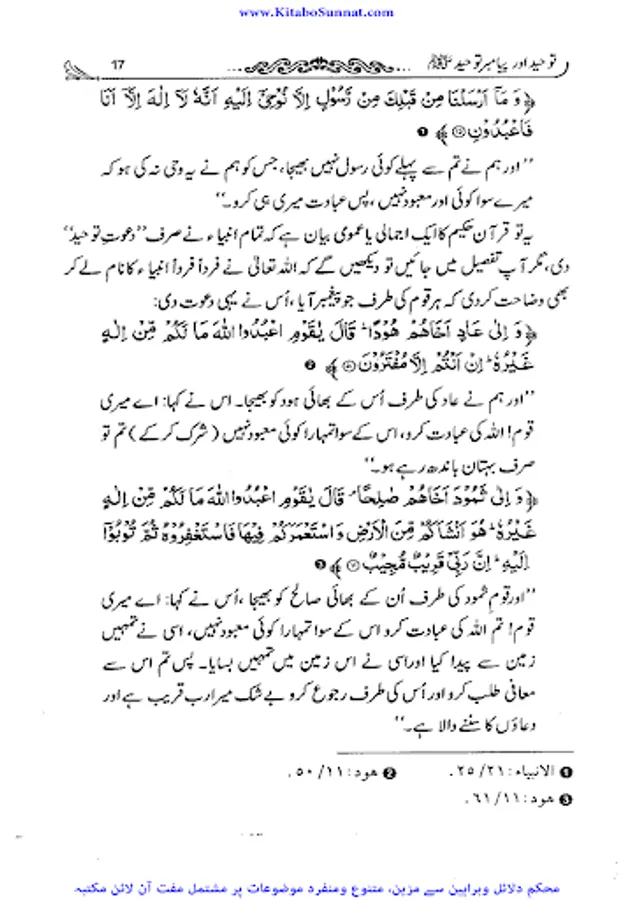 www.KitaboSunnat.com
توحید اور پیامبر توحید ﷺ 17
﴿وَ مَاۤ اَرْسَلْنَا مِنْ قَبْلِكَ مِنْ رَّسُوْلٍ اِلَّا نُوْحِیْۤ اِلَیْهِ اَنَّهٗ لَاۤ اِلٰهَ اِلَّاۤ اَنَا
فَاعْبُدُوْنِ﴾ ❶
’’اور ہم نے تم سے پہلے کوئی رسول نہیں بھیجا، جس کو ہم نے یہ وحی نہ کی ہو کہ
میرے سوا کوئی اور معبود نہیں، پس عبادت میری ہی کرو۔‘‘
یہ تو قرآن حکیم کا ایک اجمالی یا عمومی بیان ہے کہ تمام انبیاء نے صرف ’’دعوتِ توحید‘‘
دی، مگر آپ تفصیل میں جائیں تو دیکھیں گے کہ اللہ تعالیٰ نے فرداً فرداً انبیاء کا نام لے کر
بھی وضاحت کردی کہ ہر قوم کی طرف جو پیغمبر آیا، اُس نے یہی دعوت دی:
﴿وَ اِلٰی عَادٍ اَخَاهُمْ هُوْدًا ؕ قَالَ یٰقَوْمِ اعْبُدُوا اللّٰهَ مَا لَكُمْ مِّنْ اِلٰهٍ
غَیْرُهٗ ؕ اِنْ اَنْتُمْ اِلَّا مُفْتَرُوْنَ﴾ ❷
’’اور ہم نے عاد کی طرف اُس کے بھائی ہود کو بھیجا۔ اس نے کہا: اے میری
قوم! اللہ کی عبادت کرو، اس کے سوا تمہارا کوئی معبود نہیں (شرک کرکے) تم تو
صرف بہتان باندھ رہے ہو۔‘‘
﴿وَ اِلٰی ثَمُوْدَ اَخَاهُمْ صٰلِحًا ۘ قَالَ یٰقَوْمِ اعْبُدُوا اللّٰهَ مَا لَكُمْ مِّنْ اِلٰهٍ
غَیْرُهٗ ؕ هُوَ اَنْشَاَكُمْ مِّنَ الْاَرْضِ وَ اسْتَعْمَرَكُمْ فِیْهَا فَاسْتَغْفِرُوْهُ ثُمَّ تُوْبُوْۤا
اِلَیْهِ ؕ اِنَّ رَبِّیْ قَرِیْبٌ مُّجِیْبٌ﴾ ❸
’’اور قوم ثمود کی طرف اُن کے بھائی صالح کو بھیجا، اُس نے کہا: اے میری
قوم! تم اللہ کی عبادت کرو اس کے سوا تمہارا کوئی معبود نہیں، اسی نے تمہیں
زمین سے پیدا کیا اور اسی نے اس زمین میں تمہیں بسایا۔ پس تم اس سے
معافی طلب کرو اور اُس کی طرف رجوع کرو بے شک میرا رب قریب ہے اور
دعاؤں کا سننے والا ہے۔‘‘
❶ الانبیاء: ٢١/٢٥۔ ❷ ھود: ١١/٥٠۔
❸ ھود: ١١/٦١۔
محکم دلائل وبراہین سے مزین، متنوع ومنفرد موضوعات پر مشتمل مفت آن لائن مکتبہ